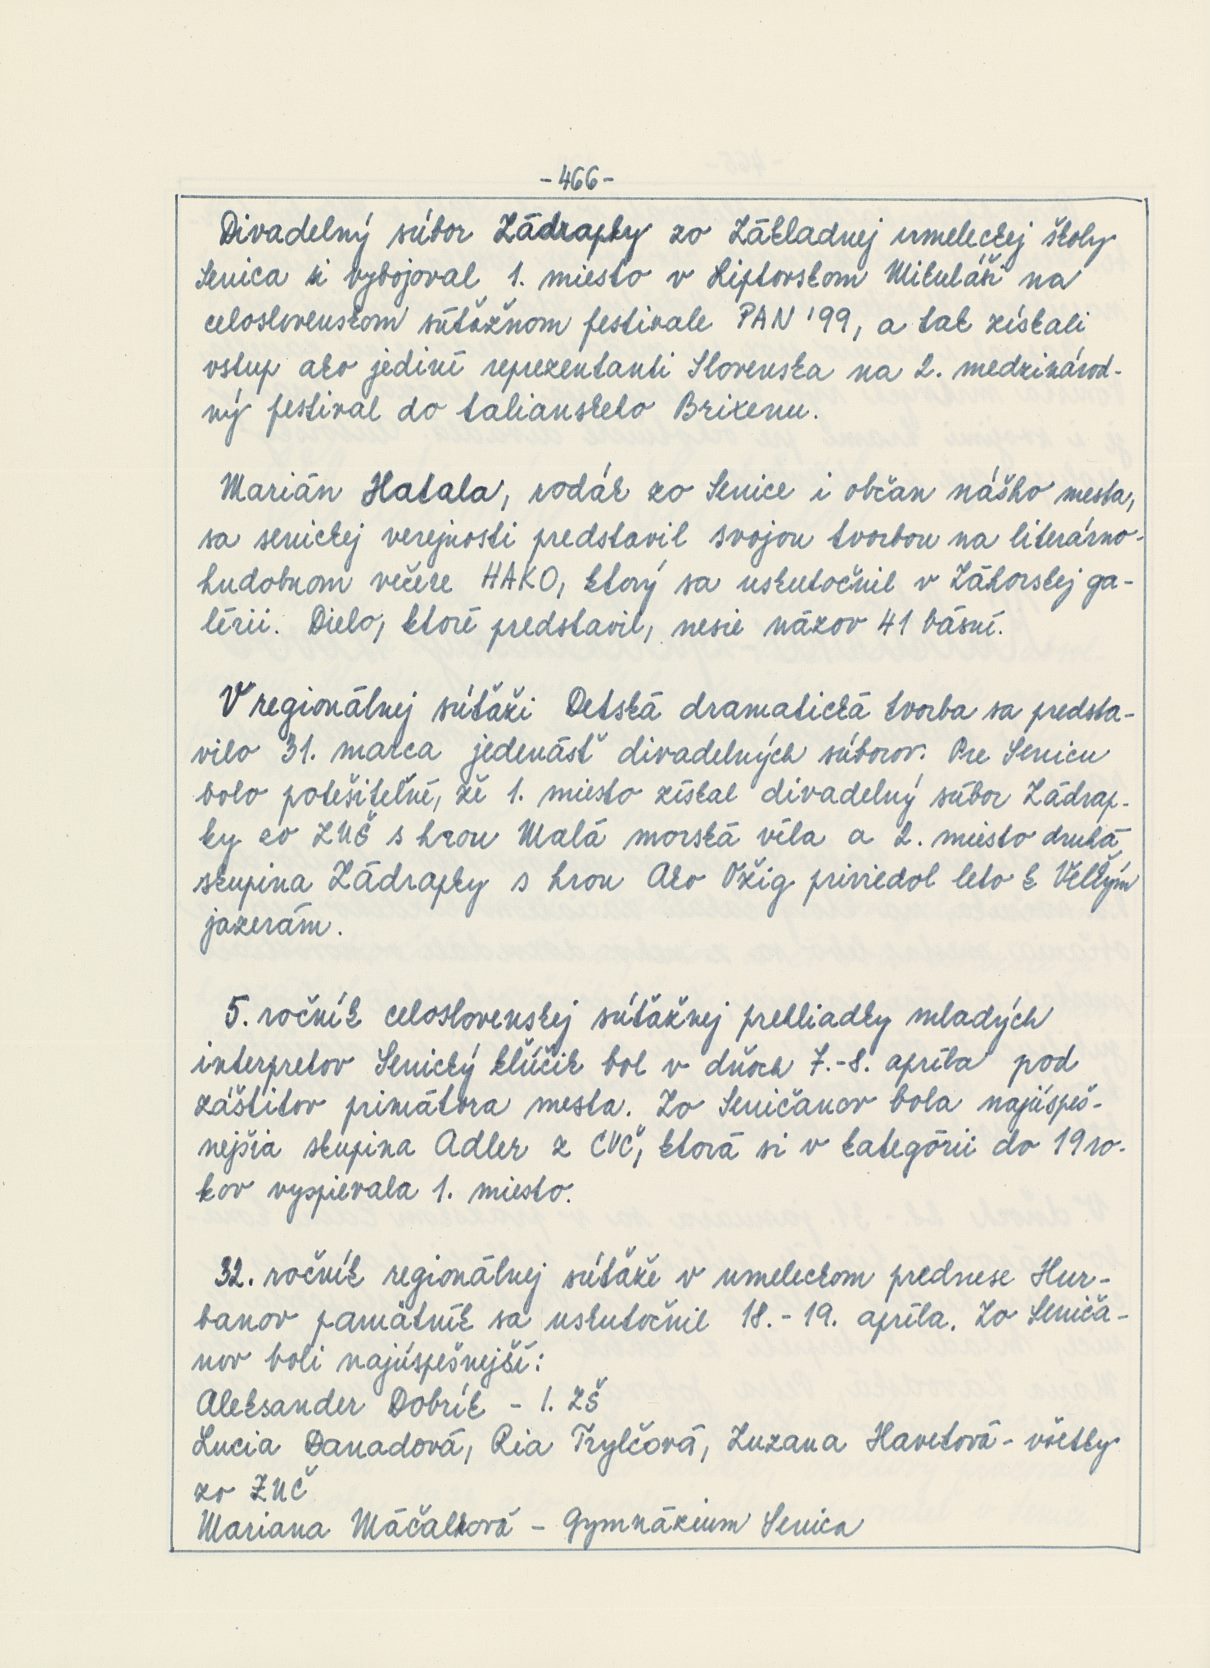 -466-
Divadelný súbor Zádrapky zo Základnej umeleckej školy
Senica si vybojoval 1. miesto v Liptovskom Mikuláši na
celoslovenskom súťažnom festivale PAN '99, a tak získali
vstup ako jediní reprezentanti Slovenska na 2. medzinárod-
ný festival do talianskeho Brixenu.
Marián Hatala, rodák zo Senice i občan nášho mesta,
sa senickej verejnosti predstavil svojou tvorbou na literárno-
hudobnom večere HAKO, ktorý sa uskutočnil v Záhorskej ga-
lérii. Dielo, ktoré predstavil, nesie názov 41 básní.
V regionálnej súťaži Detská dramatická tvorba sa predsta-
vilo 31. marca jedenásť divadelných súborov. Pre Senicu
bolo potešiteľné, že 1. miesto získal divadelný súbor Zádrap-
ky zo ZUŠ s hrou Malá morská víla a 2. miesto druhá
skupina Zádrapky s hrou Ako Ožig priviedol leto k Veľkým
jazerám.
5. ročník celoslovenskej súťažnej prehliadky mladých
interpretov Senický kľúčik bol v dňoch 7.-8. apríla pod
záštitou primátora mesta. Zo Seničanov bola najúspeš-
nejšia skupina Adler z CVČ, ktorá si v kategórii do 19 ro-
kov vyspievala 1. miesto.
32. ročník regionálnej súťaže v umeleckom prednese Hur-
banov pamätník sa uskutočnil 18.-19. apríla. Zo Seniča-
nov boli najúspešnejší:
Aleksander Dobrík - I. ZŠ
Lucia Danadová, Ria Trylčová, Zuzana Havetová - všetky
zo ZUČ
Mariana Máčalková - Gymnázium Senica